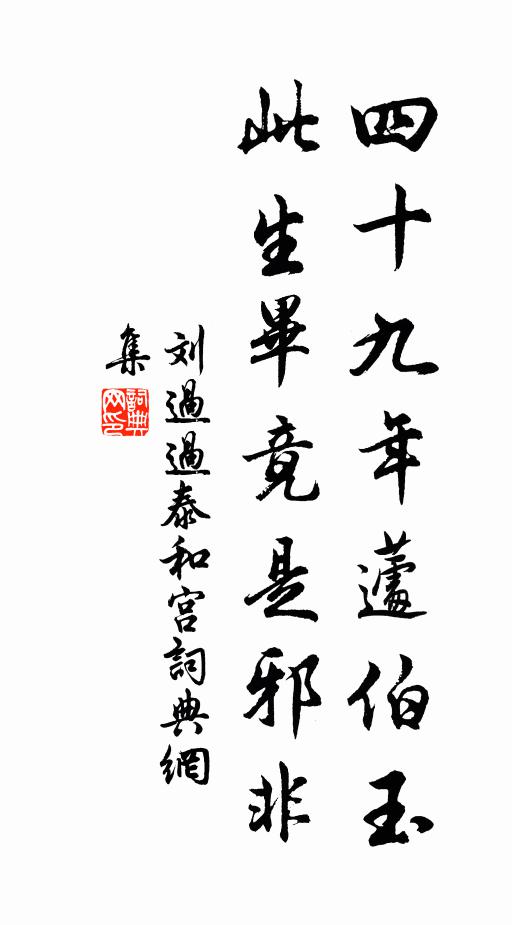 四十九年蘧伯玉
此生畢竟是邪非
刘過過泰和宫詞典網
集
詞典
网印